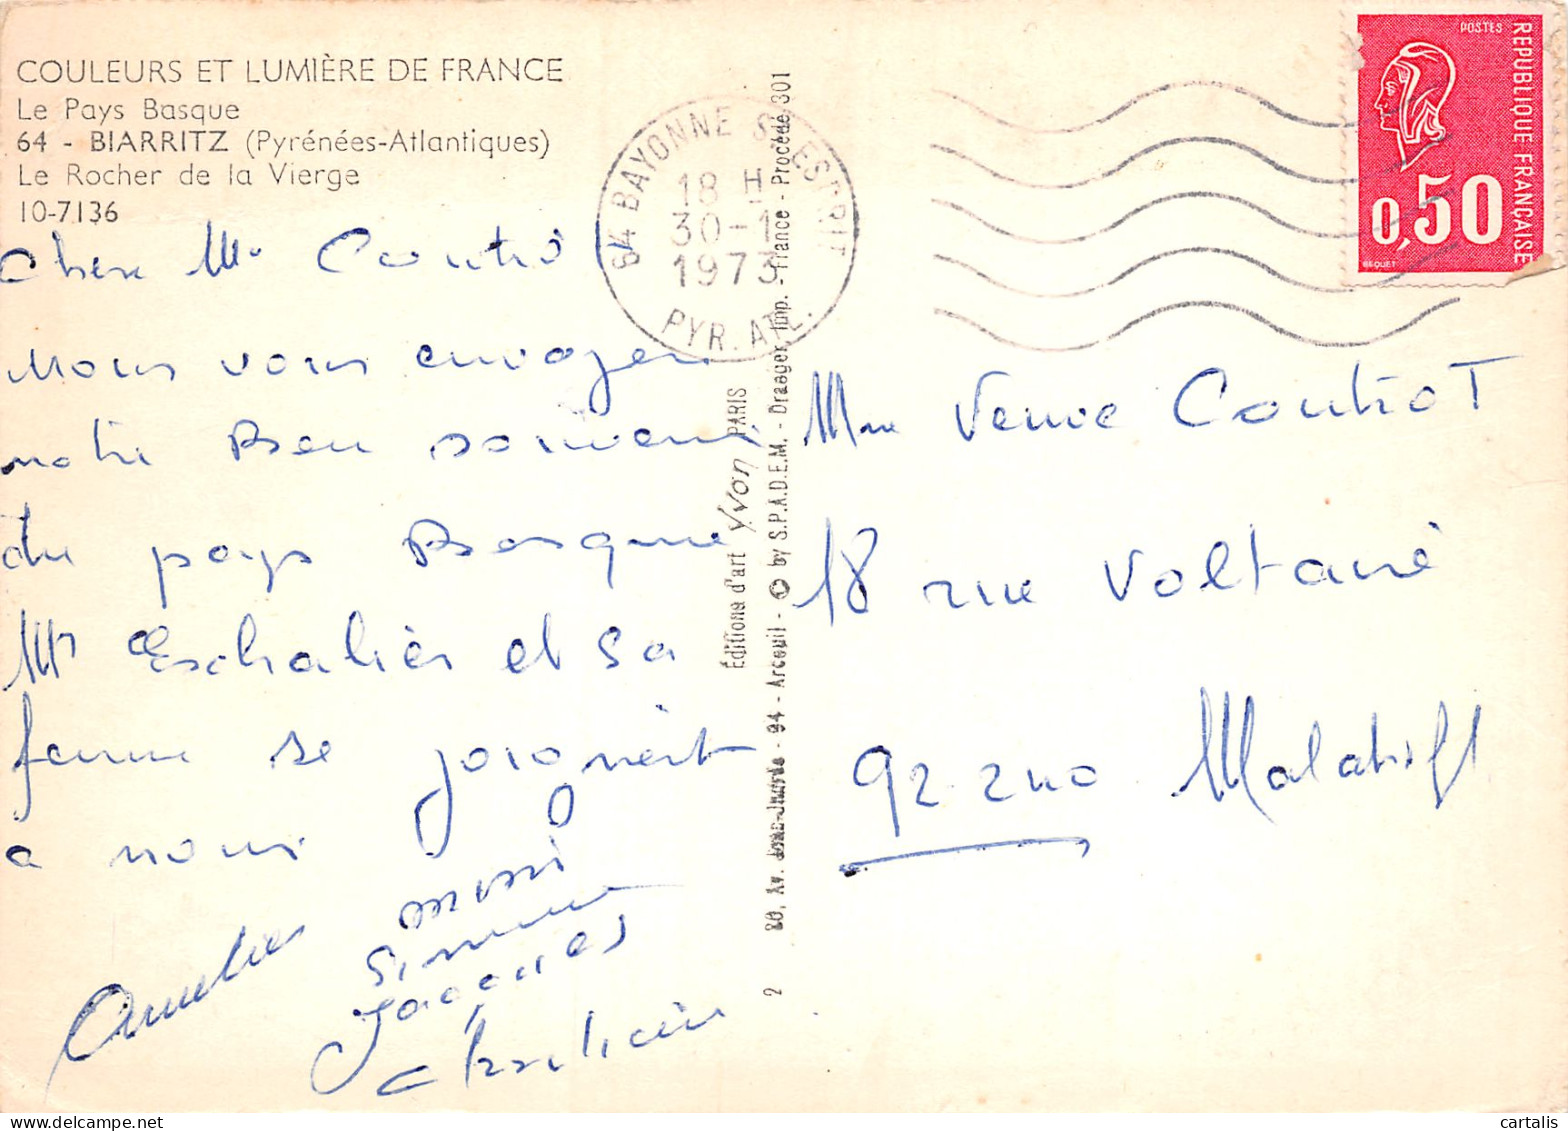 COULEURS ET LUMIÈRE DE FRANCE
Le Pays Basque
64 - BIARRITZ (Pyrénées-Atlantiques)
Le Rocher de la Vierge
10-7136
Chère Me Coutro
nous vous envoyen
notre Bon souvenir
du pays Basque
Mr Eschalier et sa
femme se joignent
a nous
Simone
Jacques
Christian
64 BAYONNE ST ESPRIT
18 H
30-1
1973
PYR. ATL.
POSTES
REPUBLIQUE FRANÇAISE
0,50
BEQUET
Éditions d'art Yvon PARIS
2 80, Av. Jean-Jaurès - 94 - Arcueil - © by S.P.A.D.E.M. - Draeger, Imp. - France - Procédé 301
Mme Veuve CoutroT
18 rue Voltaire
92240 Malakoff
cartalis